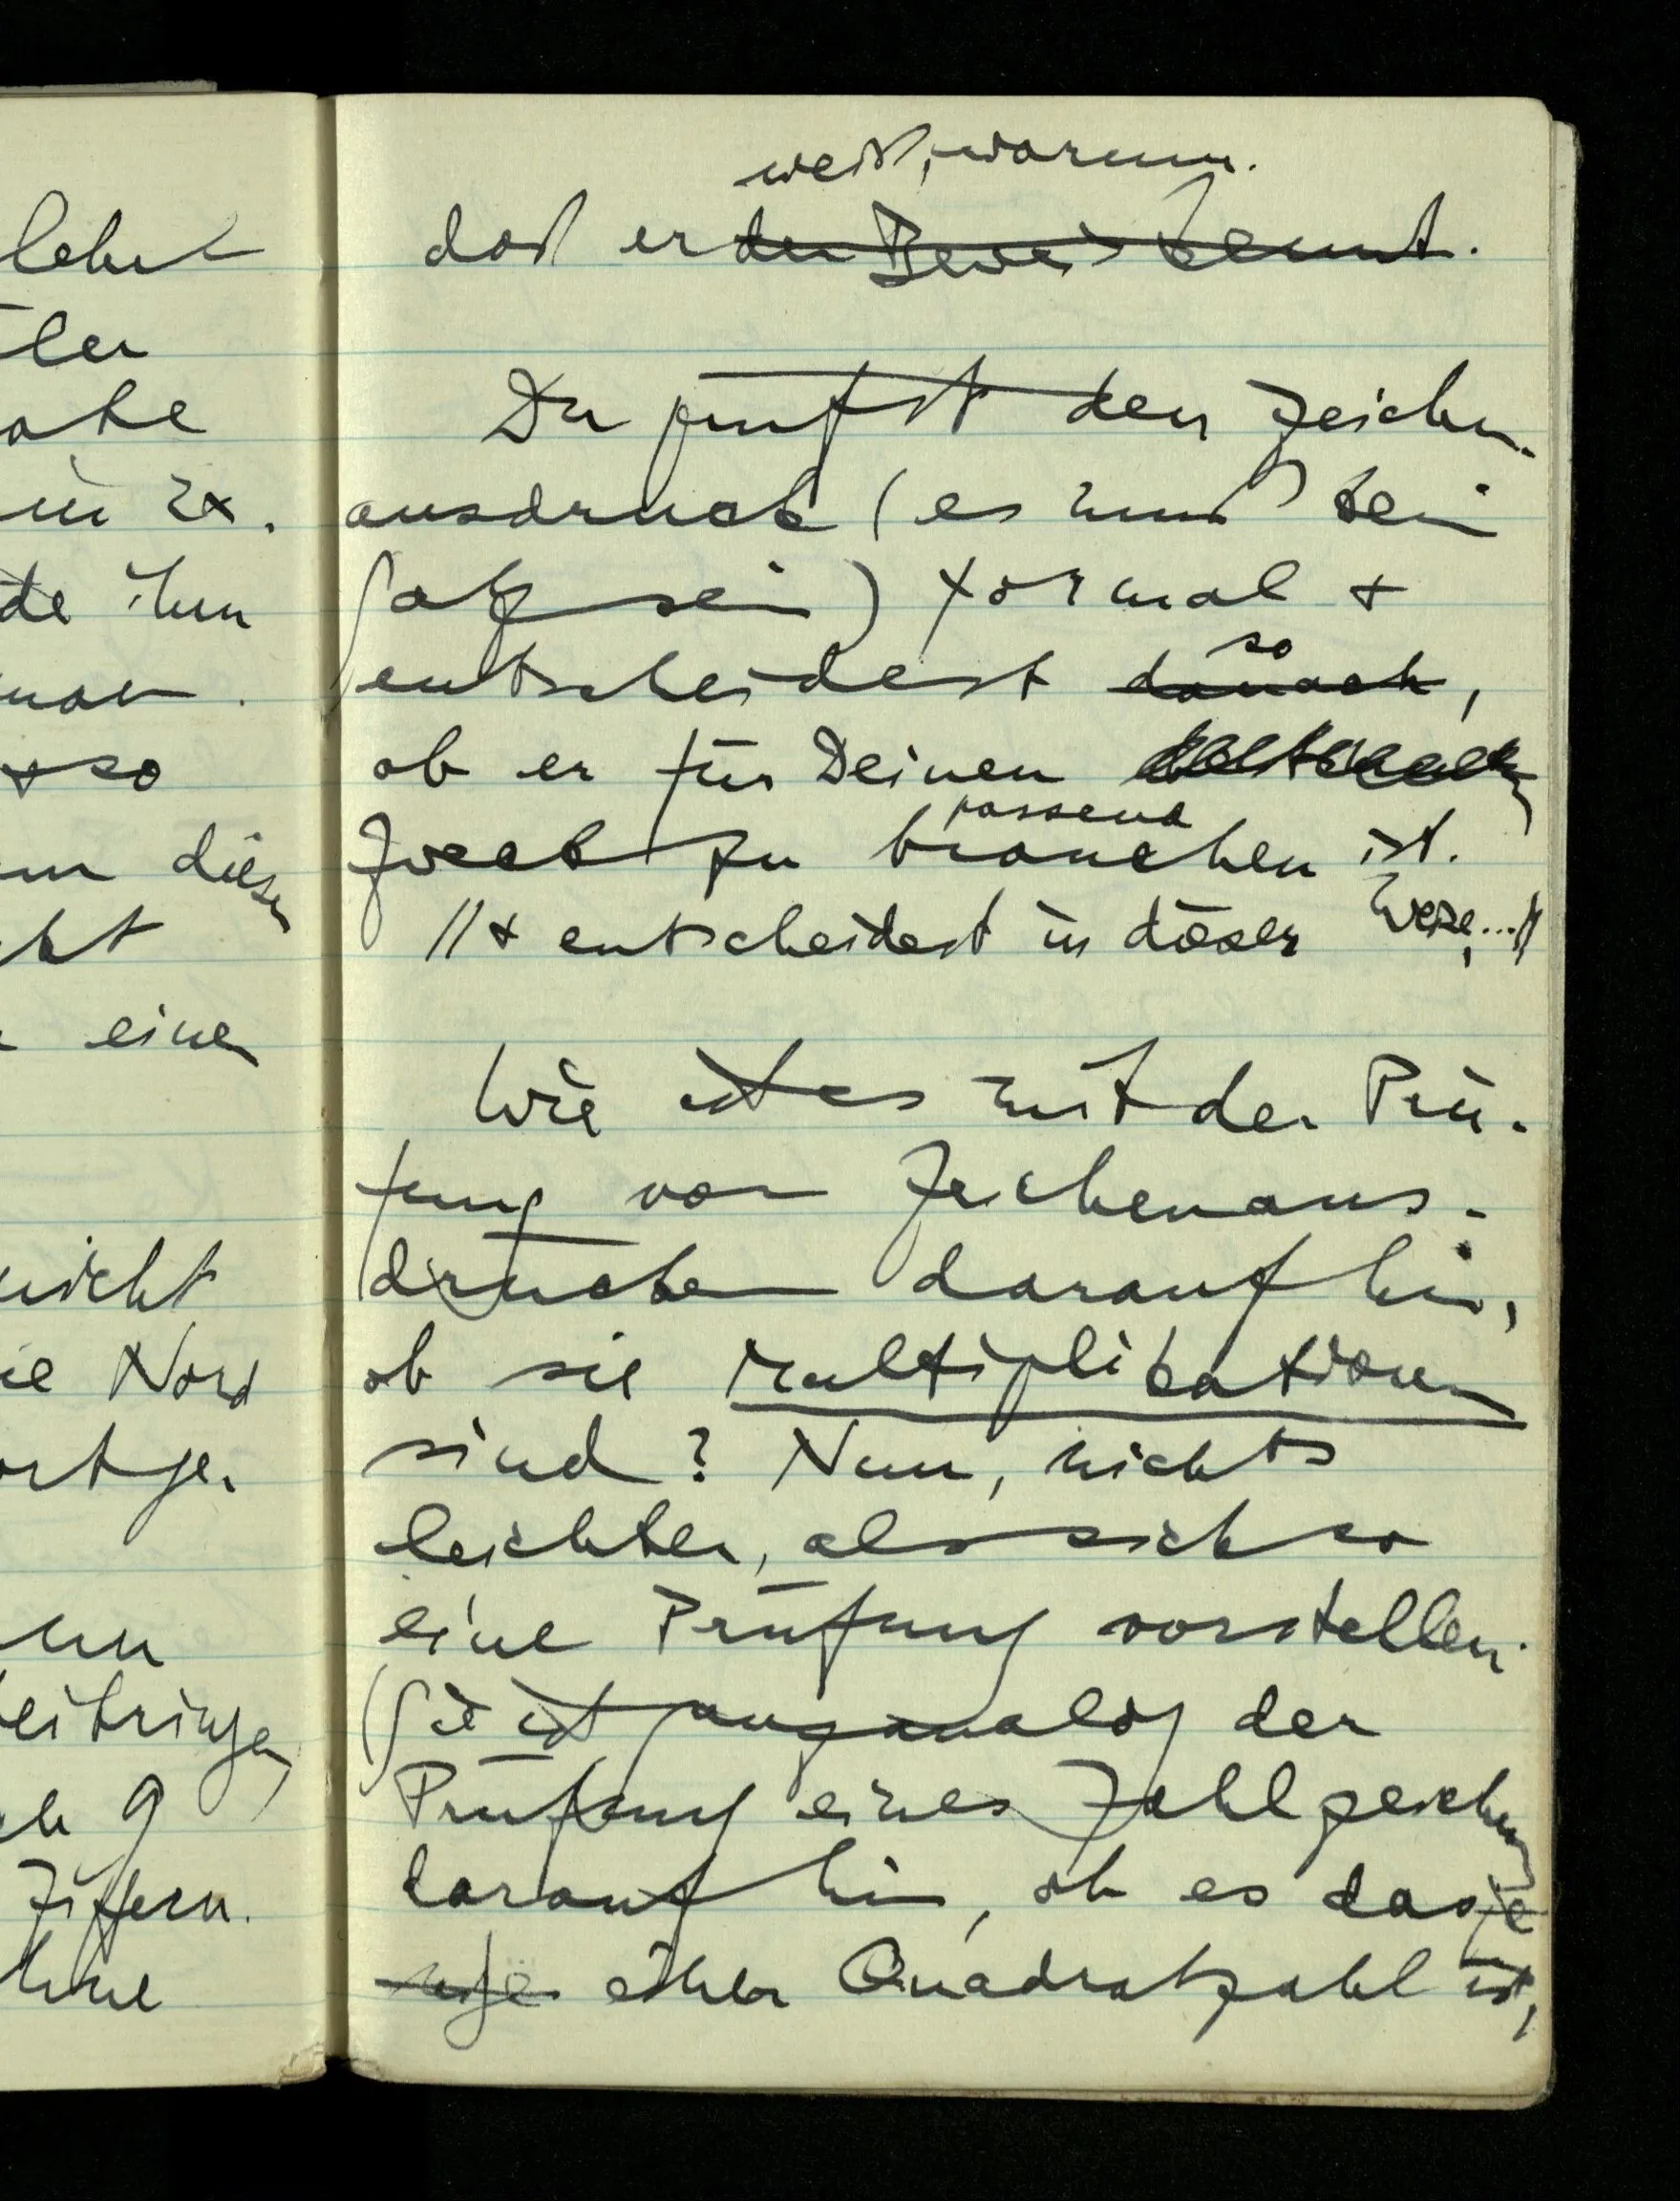 lehrt
ler
abe
in 2x.
de ihm
man
+ so
um diesen
cht
einen
nicht
ie Nord
ortge-
nn
beibringen
ch 9
Ziffern.
hne
weiß, warum.
daß er den Beweis kennt.
Du prüfst den Zeichen-
ausdruck (es muß kein
Satz sein) formal +
so
entscheidest danach,
ob er für Deinen
passend
Zweck zu brauchen ist.
// + entscheidest in dieser Weise,...//
Wie ist es mit der Prü-
fung von Zeichenaus-
drücken darauf hin,
ob sie Multiplikationen
sind? Nun, nichts
leichter, als sich so
eine Prüfung vorstellen.
Sie ist ganz analog der
Prüfung eines Zahlzeichens
darauf hin, ob es dasje
nige einer Quadratzahl ist,